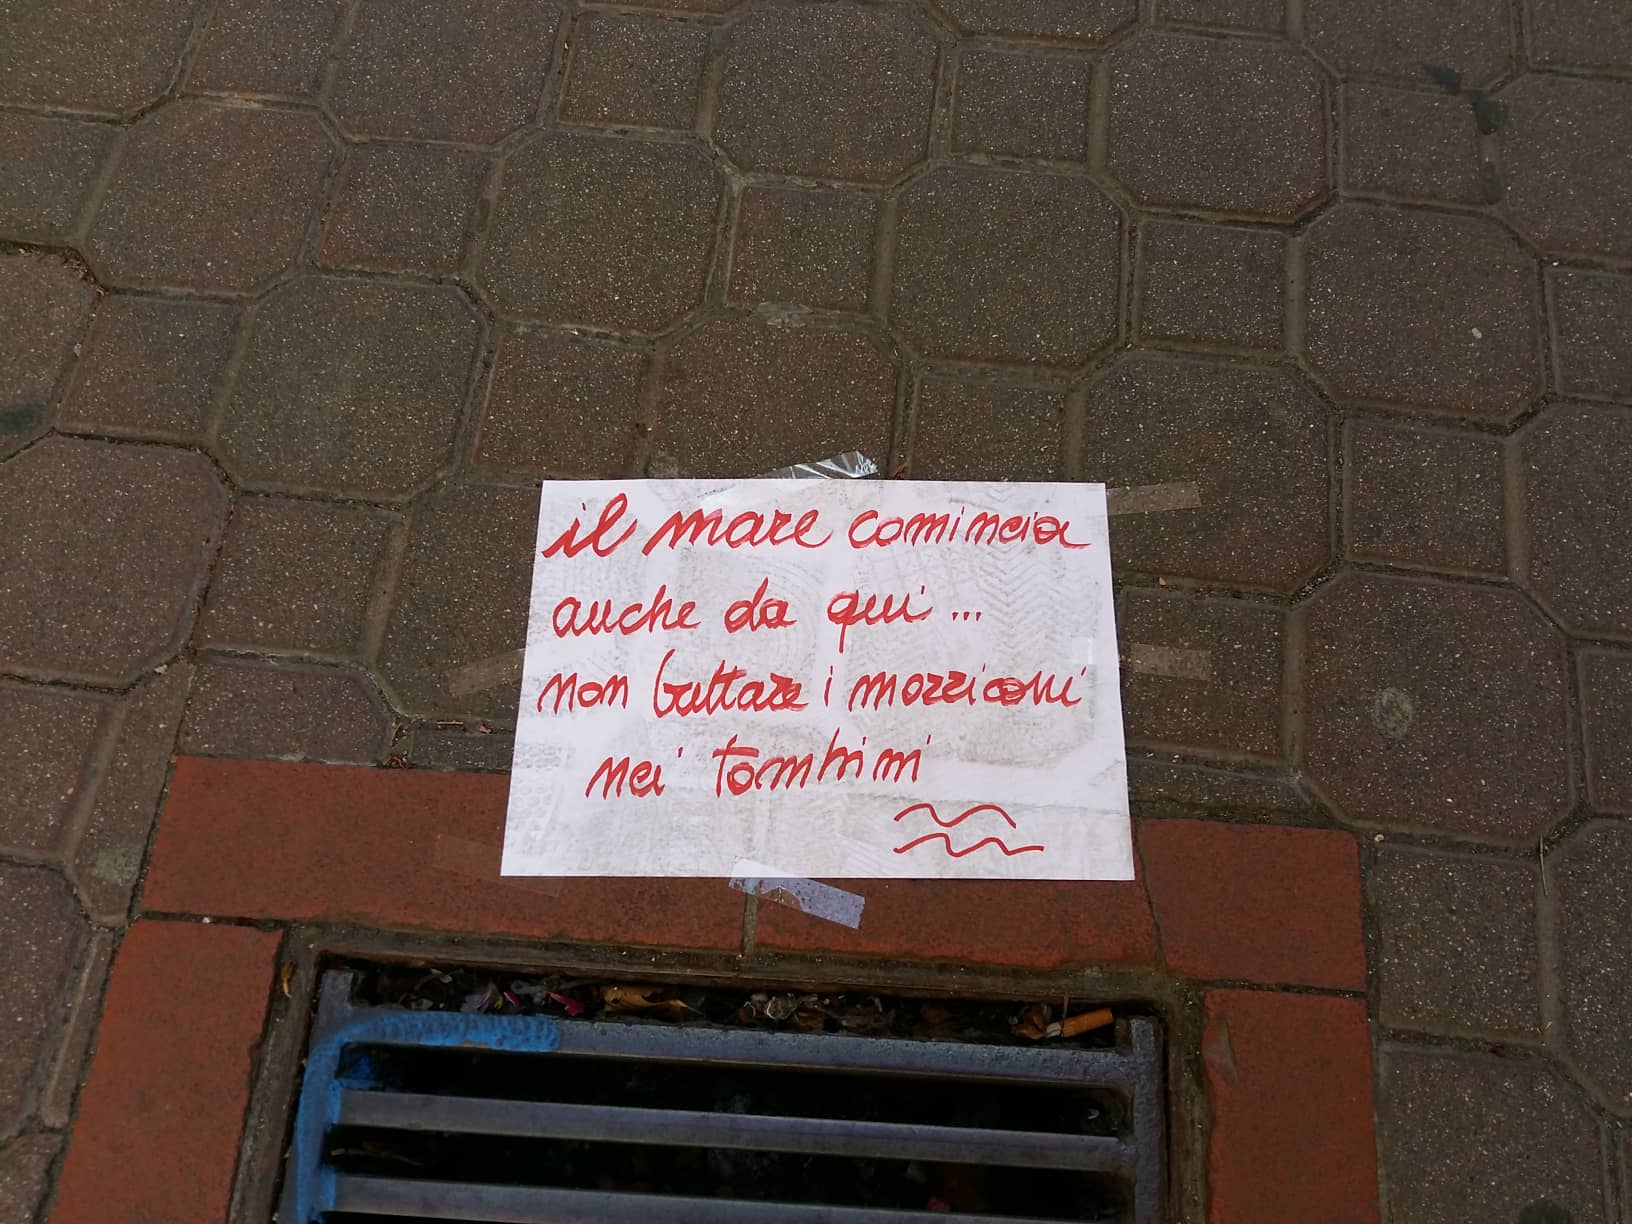 il mare comincia
anche da qui...
non buttare i mozziconi
nei tombini